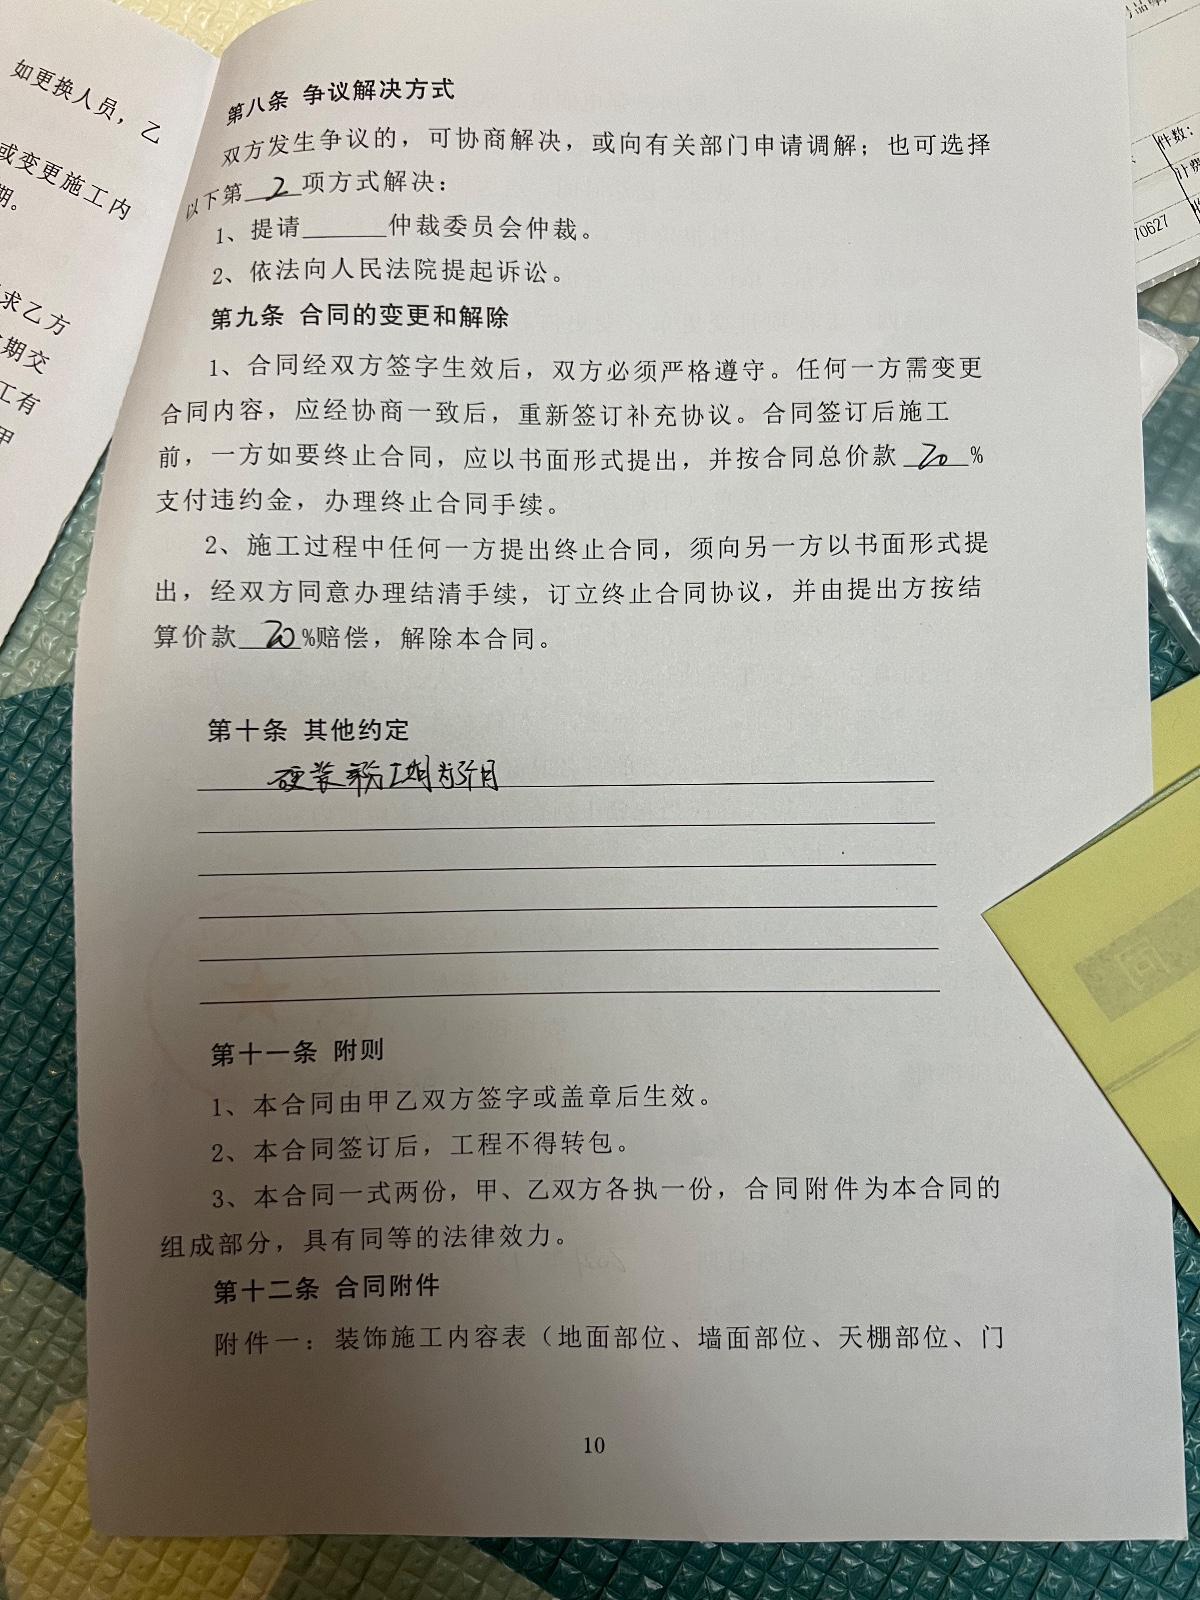 如更换人员，乙
或变更施工内
期。
求乙方
期交
工有
甲
第八条 争议解决方式
双方发生争议的，可协商解决，或向有关部门申请调解；也可选择
以下第 2 项方式解决：
1、提请______仲裁委员会仲裁。
2、依法向人民法院提起诉讼。
第九条 合同的变更和解除
1、合同经双方签字生效后，双方必须严格遵守。任何一方需变更
合同内容，应经协商一致后，重新签订补充协议。合同签订后施工
前，一方如要终止合同，应以书面形式提出，并按合同总价款 20 %
支付违约金，办理终止合同手续。
2、施工过程中任何一方提出终止合同，须向另一方以书面形式提
出，经双方同意办理结清手续，订立终止合同协议，并由提出方按结
算价款 20 %赔偿，解除本合同。
第十条 其他约定
硬装 工期为 个月
第十一条 附则
1、本合同由甲乙双方签字或盖章后生效。
2、本合同签订后，工程不得转包。
3、本合同一式两份，甲、乙双方各执一份，合同附件为本合同的
组成部分，具有同等的法律效力。
第十二条 合同附件
附件一：装饰施工内容表（地面部位、墙面部位、天棚部位、门
10
件数：
计费
70627
同